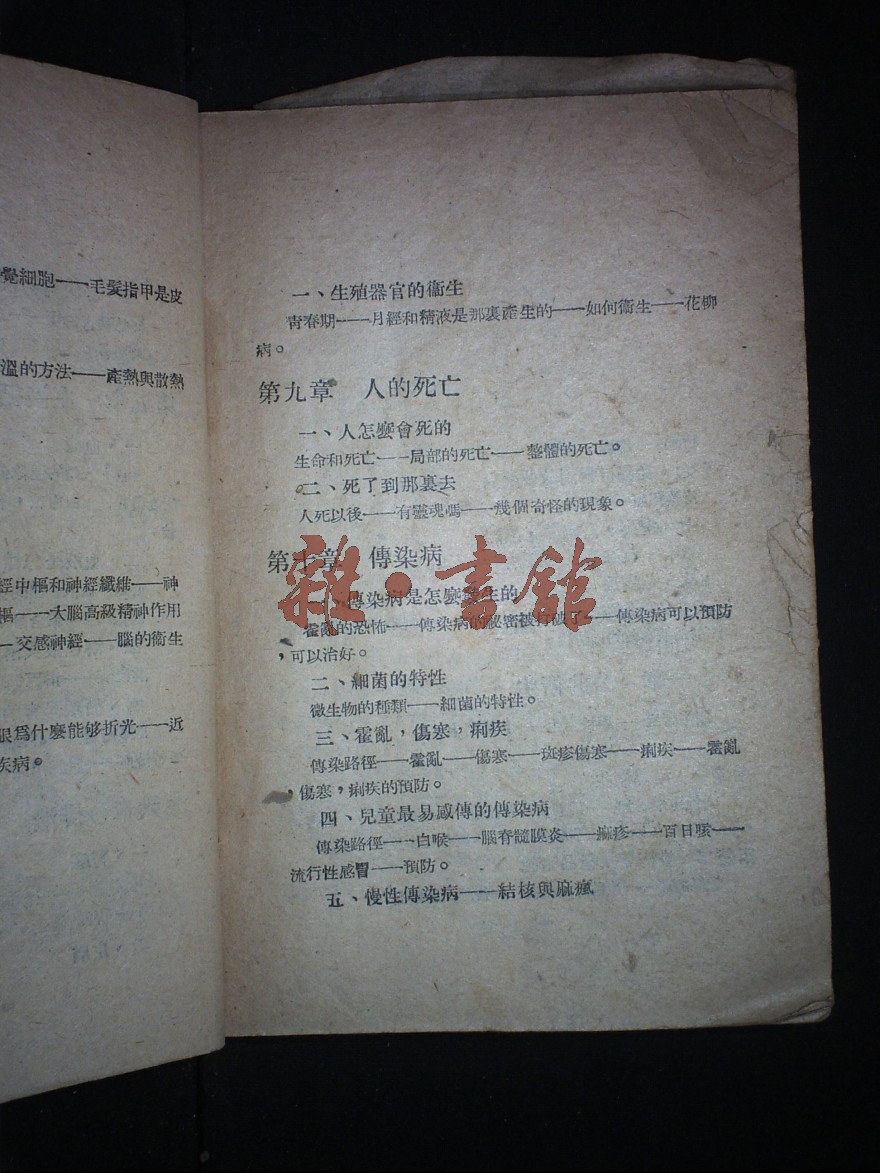 覺細胞——毛髮指甲是皮
溫的方法——產熱與散熱
經中樞和神經纖維——神
樞——大腦高級精神作用
—交感神經——腦的衞生
眼爲什麼能够折光——近
疾病。
一、生殖器官的衞生
靑春期——月經和精液是那裏產生的——如何衞生——花柳
病。
第九章　人的死亡
一、人怎麼會死的
生命和死亡——局部的死亡——整體的死亡。
二、死了到那裏去
人死以後——有靈魂嗎——幾個奇怪的現象。
第十章　傳染病
一、傳染病是怎麼發生的
霍亂的恐怖——傳染病的秘密被打破了——傳染病可以預防
，可以治好。
二、細菌的特性
微生物的種類——細菌的特性。
三、霍亂，傷寒，痢疾
傳染路徑——霍亂——傷寒——斑疹傷寒——痢疾——霍亂
，傷寒，痢疾的預防。
四、兒童最易感傳的傳染病
傳染路徑——白喉——腦脊髓膜炎——痲疹——百日咳——
流行性感冒——預防。
五、慢性傳染病——結核與麻瘋
雜·書館